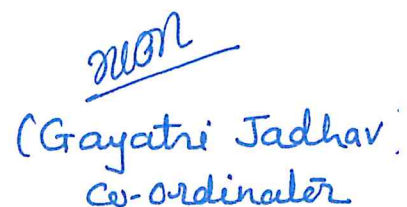 (Gayatri Jadhav)
Co-ordinator